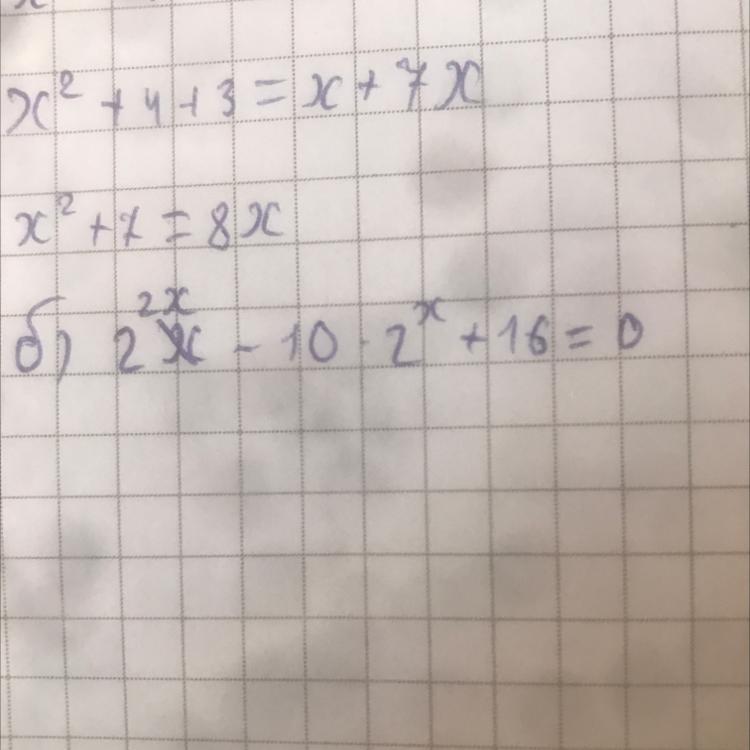 x² + 4 + 3 = x + 7x
x² + 7 = 8x
б) 2²ˣ - 10 · 2ˣ + 16 = 0